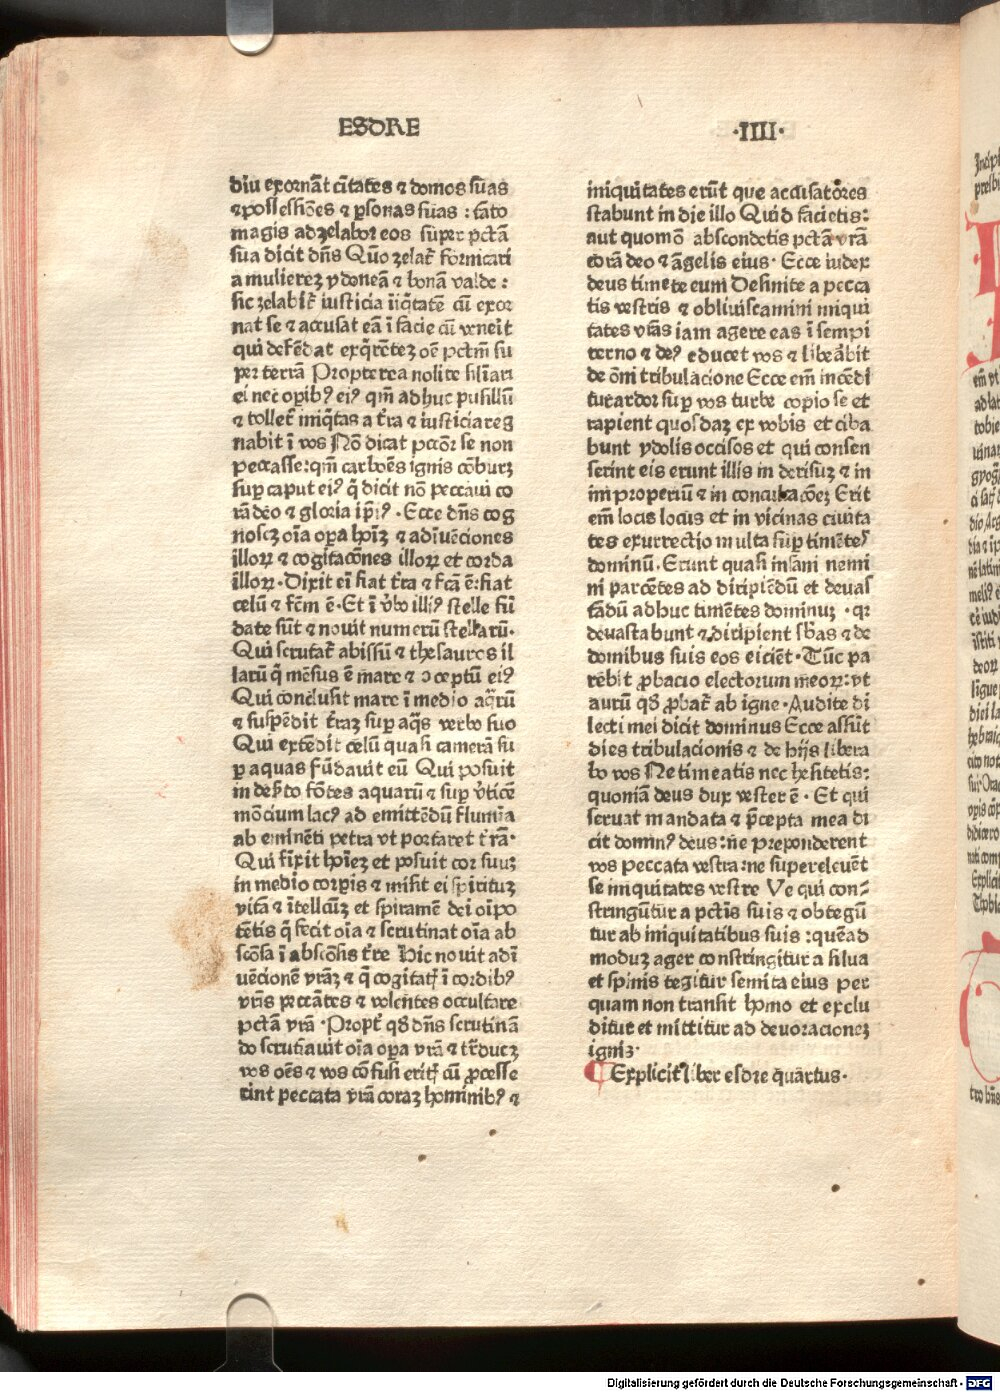 ESDRE
·IIII·
diu exornāt cītates ⁊ domos sūas
⁊possessiōes ⁊ ꝑsonas sūas : tāto
magis adzelabor eos super pctā
sua dicit dn̄s Quō zelat᷑ fornicari
a mulierez ydoneā ⁊ bonā valde :
sic zelabit᷑ iusticia īiq̄tatē cū exor
nat se ⁊ accusat eā ī facie cū veneīt
qui defēdat exq̄rētez oē pctm̄ su
per terrā Propterea nolite sil̄ari
ei nec oꝑibꝰ eiꝰ qm̄ adhuc pusillū
⁊ tollet᷑ iniq̄tas a t᷑ra ⁊ iusticia reg
nabit ī vos Nō dicat pctōr se non
peccasse:qm̄ carboēs ignis cōburz
suꝑ caput eiꝰ q̄ dicit nō peccaui co
rā deo ⁊ gloria ip̄iꝰ · Ecce dn̄s cog
noscz oīa oꝑa hoīz ⁊ adīuēciones
illoꝝ ⁊ cogitacōnes illoꝝ et corda
illoꝝ · Dixit eī fiat t᷑ra ⁊ fcā ē:fiat
celū ⁊ fcm̄ ē · Et ī v᷑bo illiꝰ stelle fū
date sūt ⁊ nouit numerū stellarū·
Qui scrutat᷑ abissū ⁊ thesauros il
larū q̄ mēsus ē mare ⁊ ↄceptū eiꝰ
Qui conclusit mare ī medio aq̄rū
⁊ suspēdit t᷑raz suꝑ aq̄s verbo suo
Qui extēdit celū quasi camerā su
ꝑ aquas fūdauit eū Qui posuit
in des᷑to fōtes aquarū ⁊ suꝑ v᷑ticē
mōcium lacꝰ ad emittēdū flumīa
ab eminēti petra vt portaret t᷑rā·
Qui finxit hoīez et posuit cor suuz
in medio corꝑis ⁊ misit ei spirituz
vitā ⁊ ītellcūz et spiramē dei oīpo
tētis q̄ fecit oīa ⁊ scrutinat oīa ab
scōsa ī abscōsis t᷑re Hic nouit adī
uēcionē vr̄az ⁊ q̄ cogitatꝭ ī cordibꝰ
vr̄is peccātes ⁊ volentes occultare
pctā vr̄a · Propt᷑ qđ dn̄s scrutinā
do scrutiauit oīa oꝑa vr̄a ⁊ tr̄ducz
vos oēs ⁊ vos cōfusi eritꝭ cū ꝓcesse
rint peccata vr̄a coraz hominibꝰ ⁊
iniquitates erūt que accusatores
stabunt in die illo Quid facietis:
aut quomō abscondetis pctā vr̄a
corā deo ⁊ āgelis eius · Ecce iudex
deus timete eum Desinite a pecca
tis vestris ⁊ obliuiscamini iniqui
tates vr̄as iam agere eas ī sempi
terno ⁊ deꝰ educet vos ⁊ libeābit
de om̄i tribulacione Ecce em̄ incēdi
tur ardor suꝑ vos turbe copiose et
rapient quosdaz ex vobis et ciba
bunt ydolis occisos et qui consen
serint eis erunt illis in derisuz ⁊ in
improperiū ⁊ in conculcacōez Erit
em̄ locis locus et in vicinas ciuita
tes exurrectio multa suꝑ timētes
dominū. Erunt quasi insani nemi
ni parcētes ad diripiēdū et deuas
tādū adhuc timētes dominuz · qꝛ
deuastabunt ⁊ diripient sb̄as ⁊ de
domibus suis eos eiciēt · Tūc pa
rebit ꝓbacio electorum meoꝝ: vt
aurū qđ ꝓbat᷑ ab igne · Audite di
lecti mei dicit dominus Ecce assūt
dies tribulacionis ⁊ de hijs libera
bo vos Ne timeatis nec hesitetis:
quoniā deus dux vester ē · Et qui
seruat mandata ⁊ p̄cepta mea di
cit dominꝰ deus: ne preponderent
vos peccata vestra: ne supereleuēt
se iniquitates vestre Ve qui con⸗
stringūtur a pctīs suis ⁊ obtegū
tur ab iniquitatibus suis : quēad
moduz ager constringitur a silua
et spinis tegitur semita eius per
quam non transit homo et exclu
ditur et mittitur ad deuoracionez
ignis·
¶ Explicit liber esdre quartus·
Digitalisierung gefördert durch die Deutsche Forschungsgemeinschaft · DFG